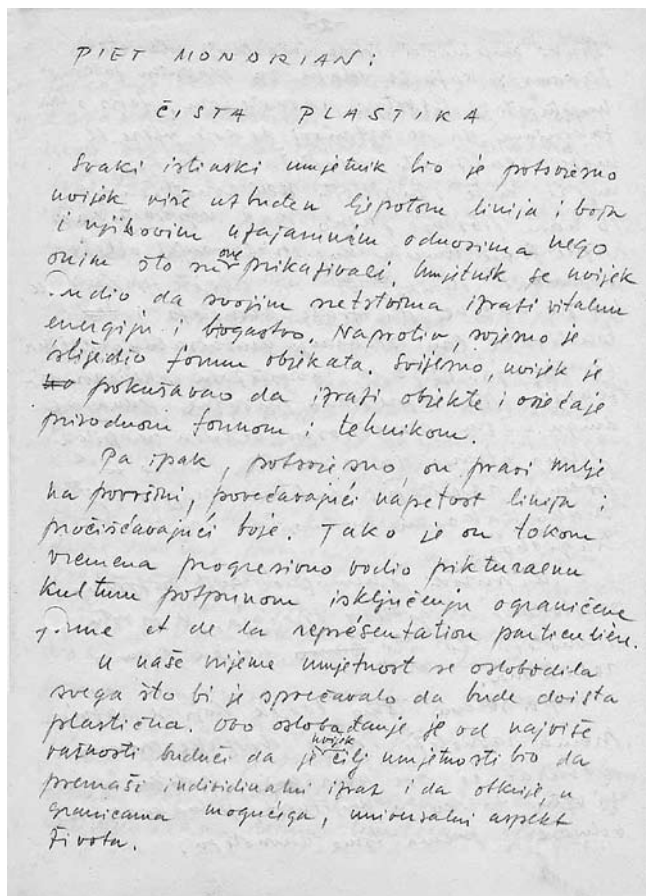 PIET MONDRIAN:
ČISTA PLASTIKA
Svaki istinski umjetnik bio je potsvjesno
uvijek više uzbuđen ljepotom linija i boja
i njihovim uzajamnim odnosima nego
onim što su one prikazivali. Umjetnik se uvijek
trudio da svojim sretstvima izrazi vitalnu
energiju i bogastvo. Naprotiv, svjesno je
slijedio formu objekata. Svijesno, uvijek je
pokušavao da izrazi objekte i osjećaje
prirodnom formom i tehnikom.
Pa ipak, potsvjesno on pravi
na površini, povećavajući napetost linija i
pročišćavajući boje. Tako je on tokom
vremena progresivno vodio pikturalnu
kulturu potpunom isključenju ograničene
forme et de la représentation particulière.
U naše vrijeme umjetnost se oslobodila
svega što bi je sprečavalo da bude doista
plastična. Ovo oslobađanje je od najviše
važnosti budući da je uvijek cilj umjetnosti bio da
premaši individualni izraz i da otkrije, u
granicama mogućega, univerzalni aspekt
života.